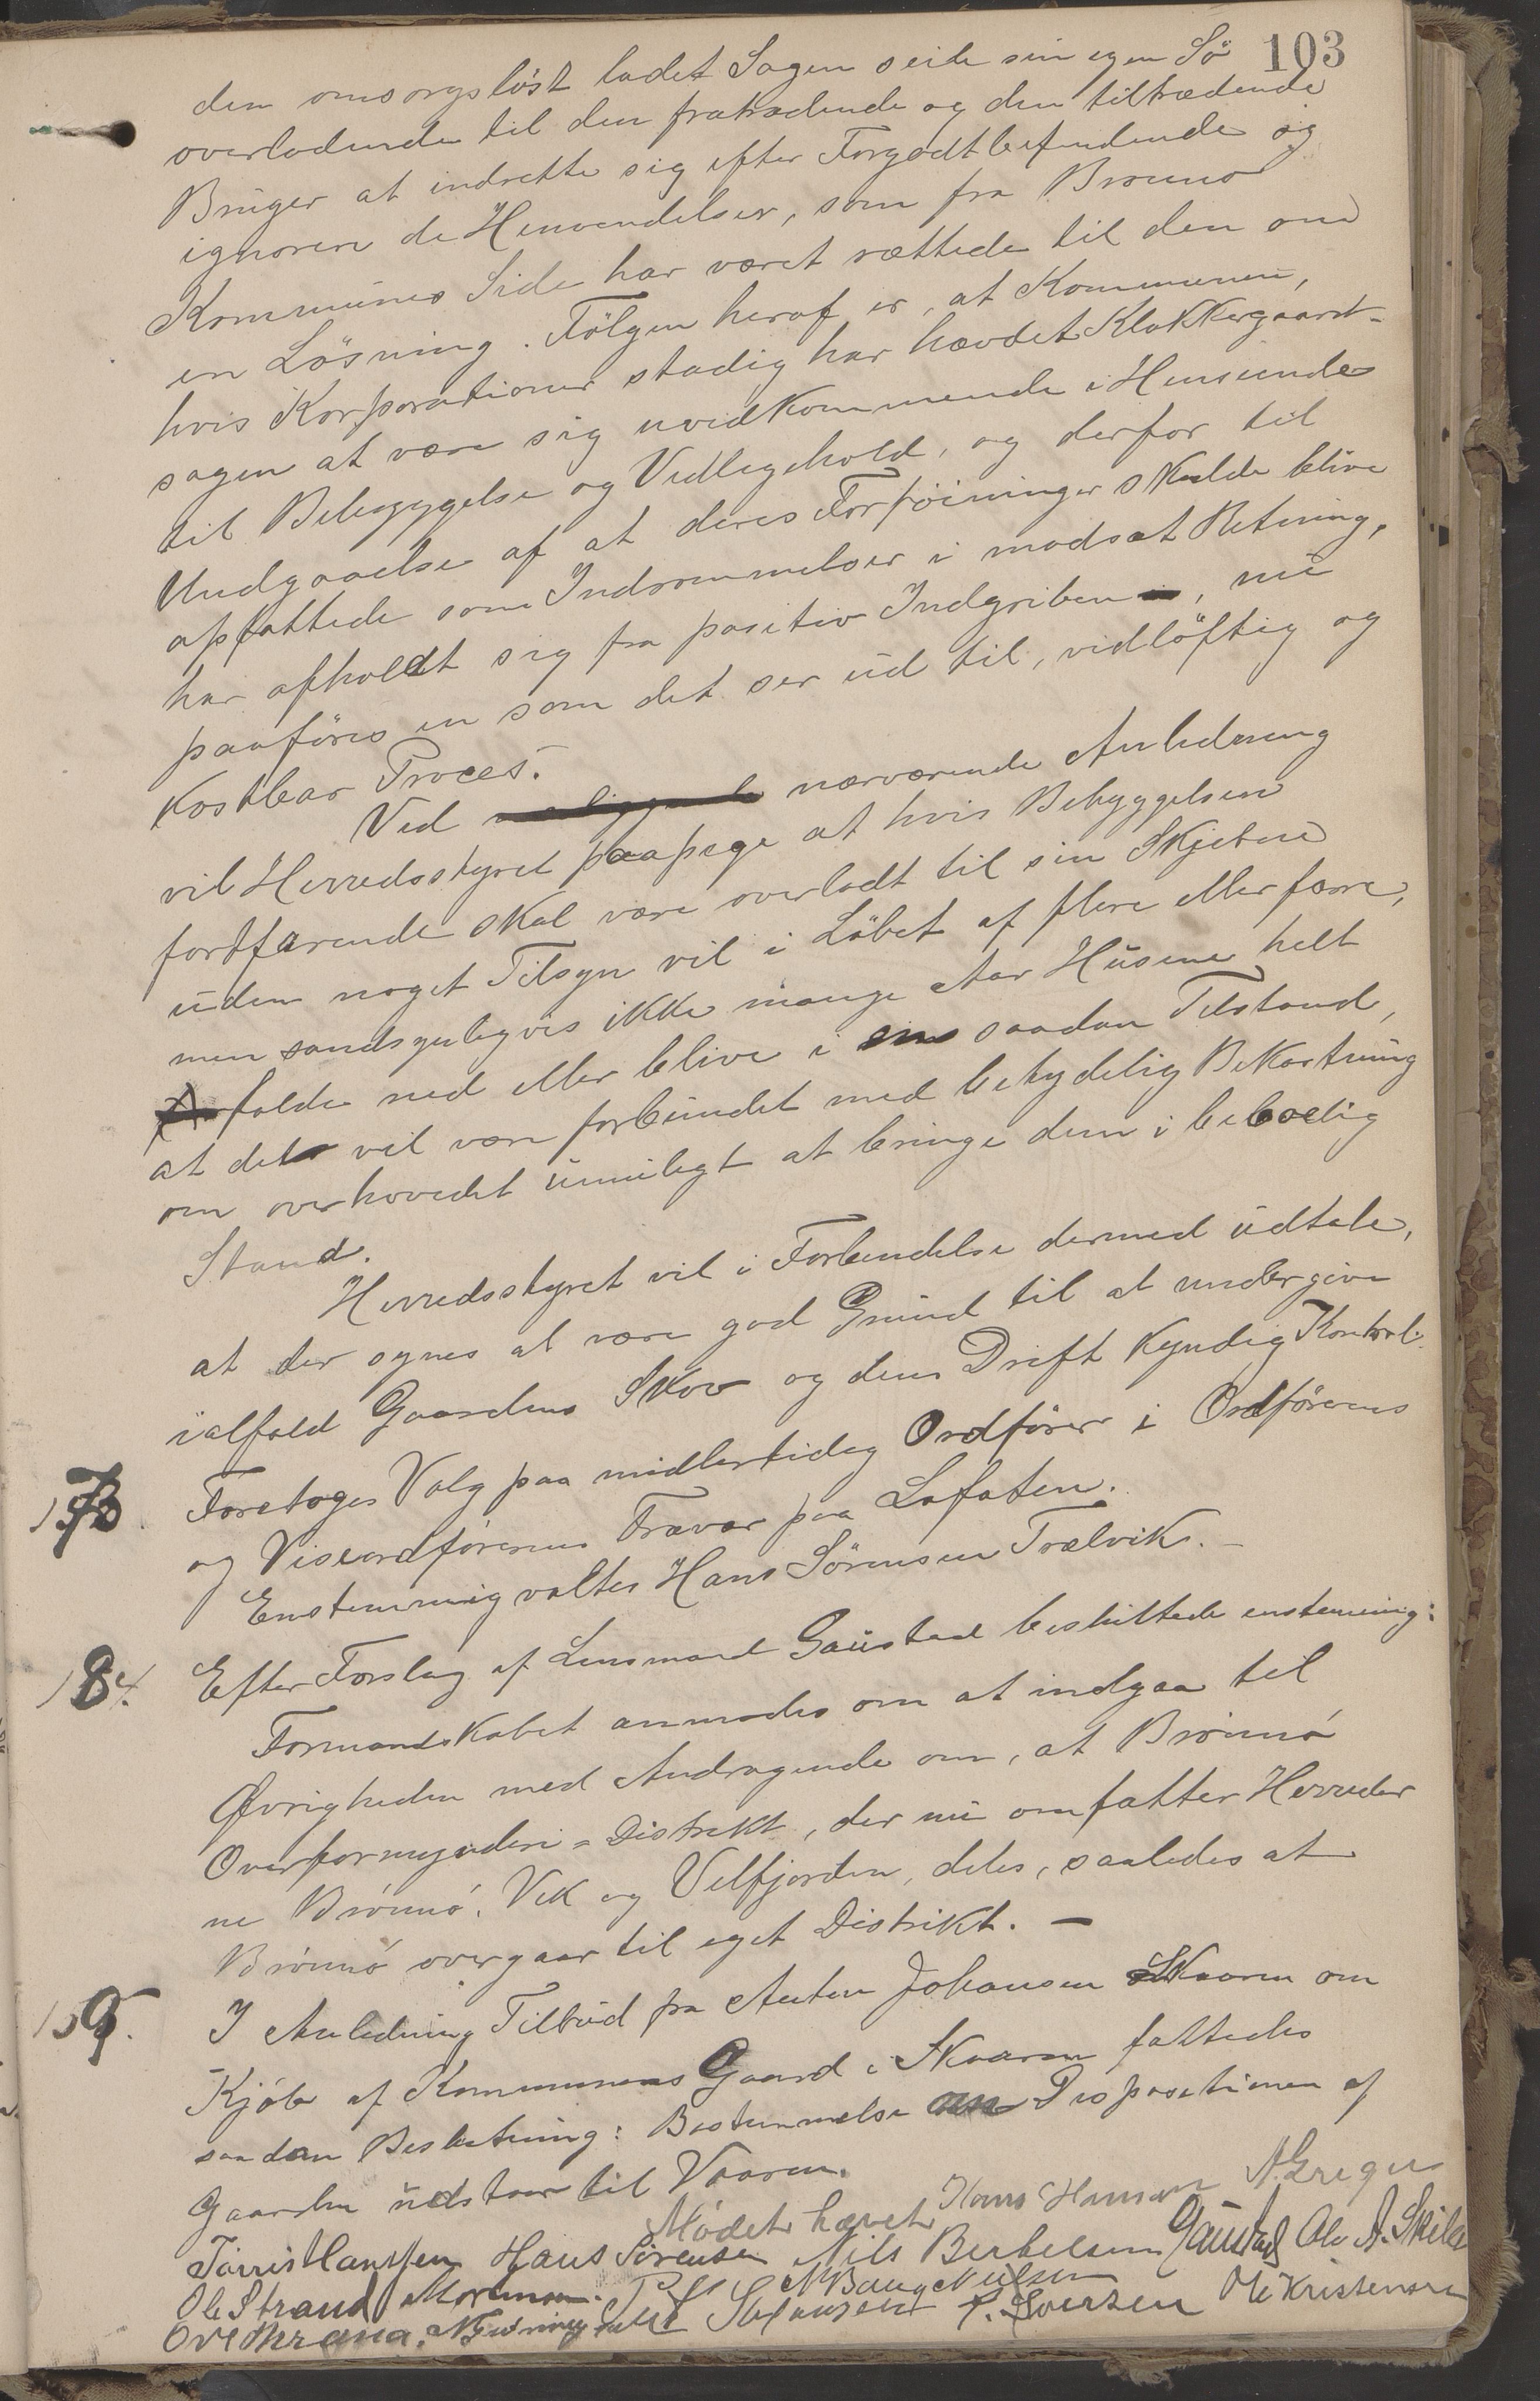 103
den omsorgsløst ladet Sagen seile sin egen Sö
overladende til den fratrædende og den tiltrædende
Bruger at indrette sig efter Forgodtbefindende og
ignorere de Henvendelser, som fra Brønnø
Kommunes Side har været rettede til den om
en Løsning. Følgen heraf er, at Kommunen,
hvis Korporationer stadig har hævdet Klokkergaard-
sagen at være sig uvedkommende i Henseende
til Bebyggelse og Vedligehold, og derfor til
Undgaaelse af at deres Forføininger skulde blive
opfattede som Indrømmelser i modsat Retning,
har afholdt sig fra positiv Indgriben, nu
paaføres en som det ser ud til, vidløftig og
kostbar Proces.
Ved nærværende Anledning
vil Herredsstyret paapege at hvis Bebyggelsen
fortfarende skal være overladt til sin Skjebne
uden noget Tilsyn vil i Løbet af flere eller færre,
men sandsynligvis ikke mange Aar Husene helt
falde ned eller blive i en saadan Tilstand,
at det vil være forbundet med betydelig Bekostning
om overhovedet umuligt at bringe dem i beboelig
Stand.
Herredsstyret vil i Forbindelse dermed udtale,
at der synes at være god Grund til at undergive
ialfald Gaardens Skov og dens Drift kyndig Kontrol.
Foretoges Valg paa midlertidig Ordfører i Ordførerens
og Viseordførerens Fravær paa Lofoten.
Enstemmig valtes Hans Sørensen Trælvik. –
184. Efter Forslag af Lensmand Gaustad besluttede enstemmig:
Formandskabet anmodes om at indgaa til
Øvrigheden med Andragende om, at Brønnø
Overformynderi-Distrikt, der nu omfatter Herreder
ne Brønnø, Vik og Velfjorden, deles, saaledes at
Brønnø overgaar til eget Distrikt. –
I Anledning Tilbud fra Anton Johansen Skaaren om
Kjøb af Kommunens Gaard i Skaaren fattedes
saadan Beslutning: Bestemmelse om Dispositionen af
Gaarden udstaar til Vaaren.
Mødet hævet. Hans Hansen
Tørris Hanssen Hans Sörensen Nils Berthelsen Gaustad
Ole Strand Mortensen. Ole Kristensen
P. Sivertsen